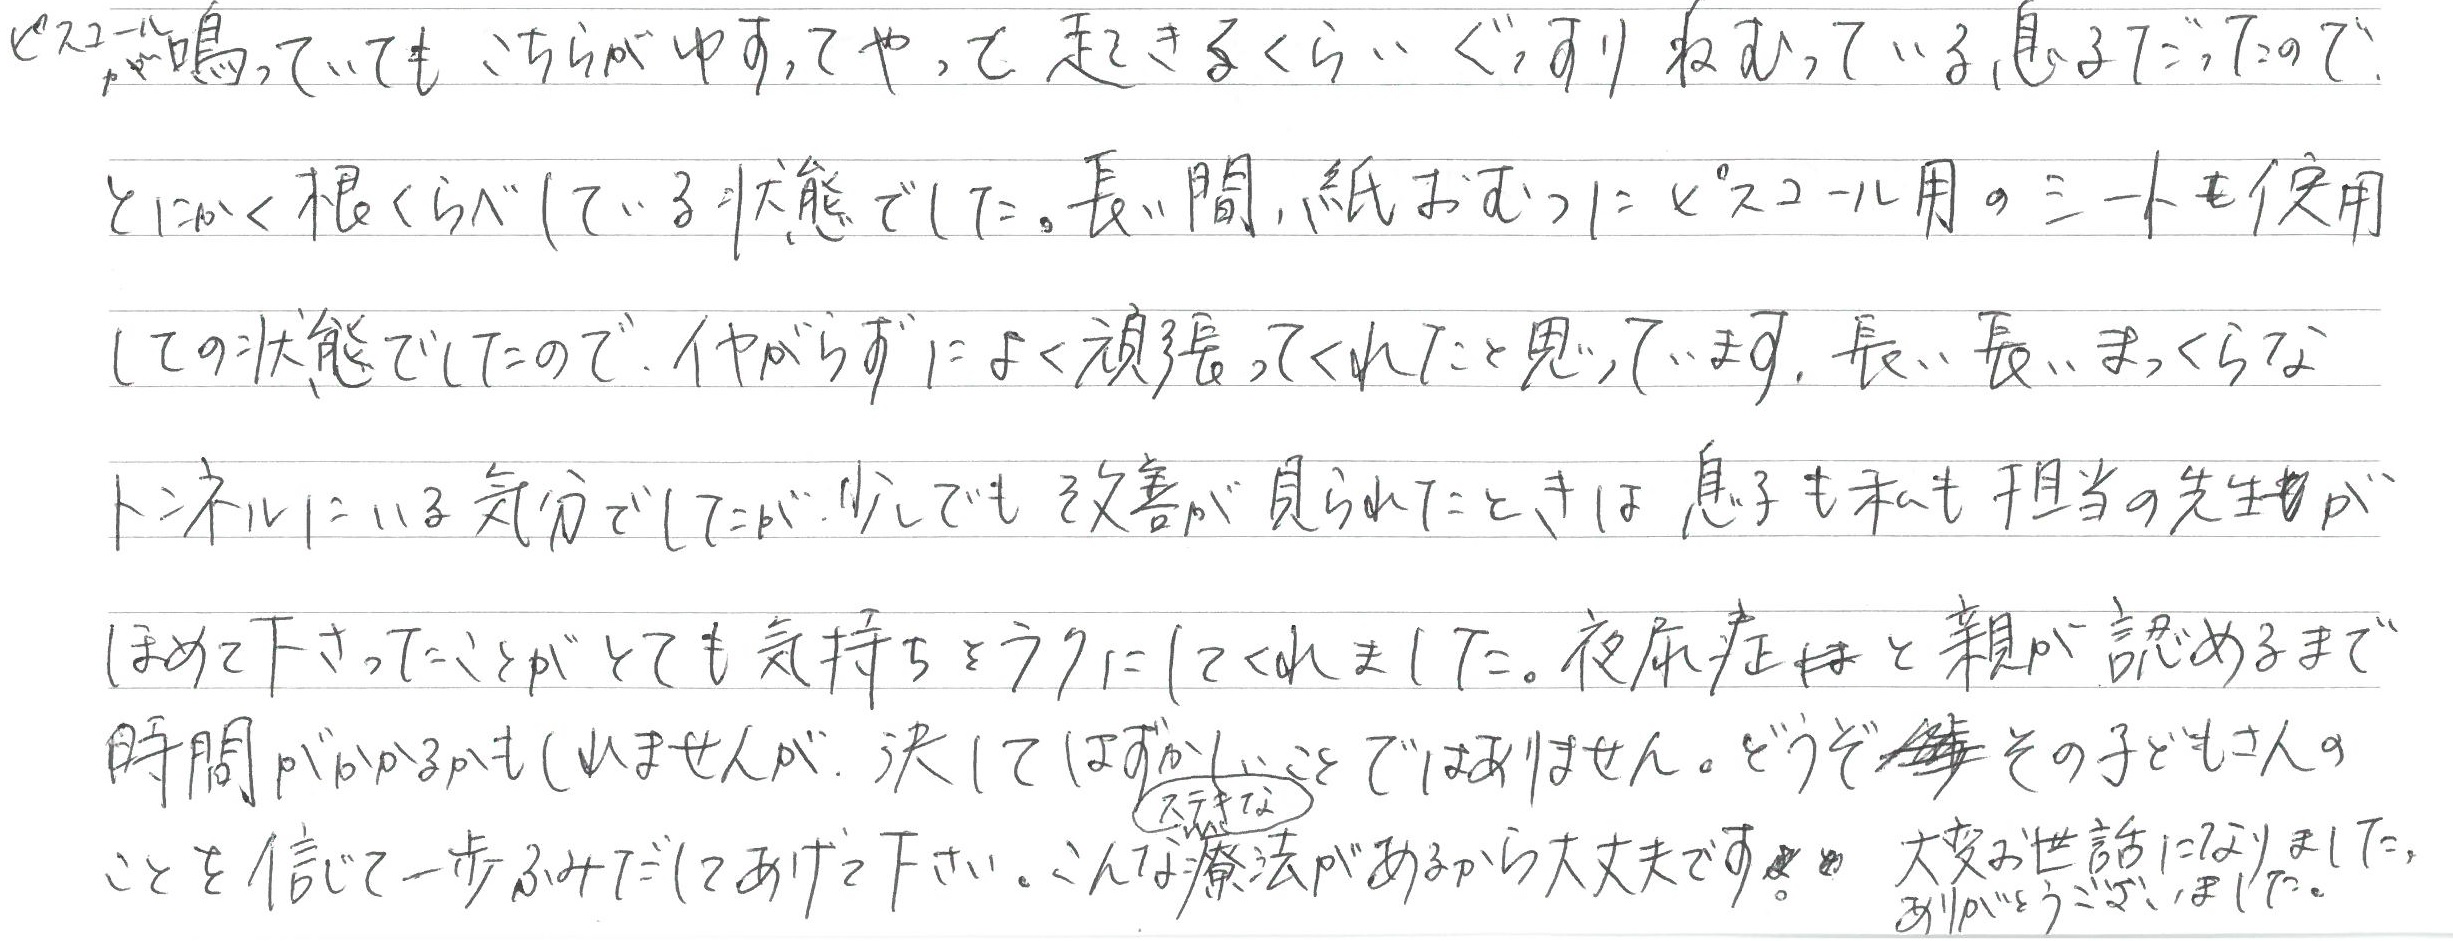 ピスコールが鳴っていてもこちらがゆすってやっと起きるくらいぐっすりねむっている息子だったので、
とにかく根くらべしている状態でした。長い間、紙おむつにピスコール用のシートも使用
しての状態でしたので、イヤがらずによく頑張ってくれたと思っています。長い長いまっくらな
トンネルにいる気分でしたが、少しでも改善が見られたときは息子も私も担当の先生が
ほめて下さったことがとても気持ちをラクにしてくれました。夜尿症と親が認めるまで
時間がかかるかもしれませんが、決してはずかしいことではありません。どうぞその子どもさんの
ことを信じて一歩ふみだしてあげて下さい。こんなステキな療法があるから大丈夫です。
大変お世話になりました。
ありがとうございました。